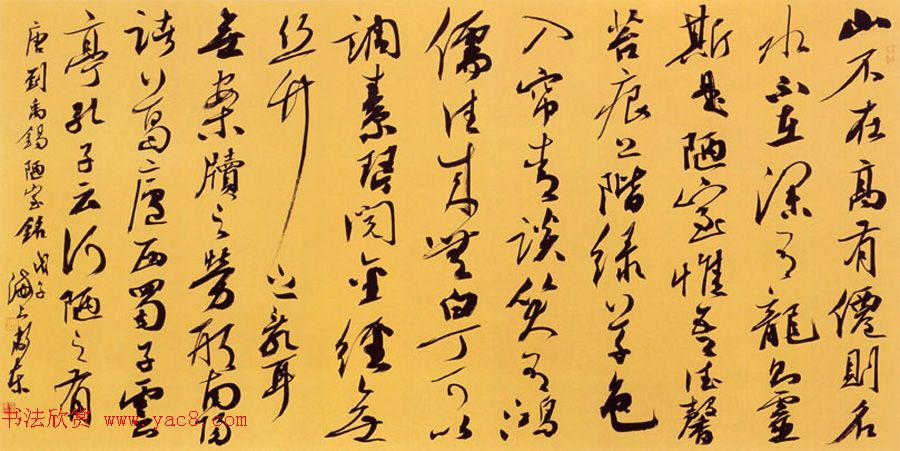 山不在高有僊則名
水不在深有龍則靈
斯是陋室惟吾德馨
苔痕上階綠草色
入帘青談笑有鴻
儒往來無白丁可以
調素琴閱金經無
丝竹之亂耳
無案牘之勞形南陽
諸葛廬西蜀子雲
亭孔子云何陋之有
唐劉禹錫陋室銘 戊子
海上
书法欣赏 www.yac8.com